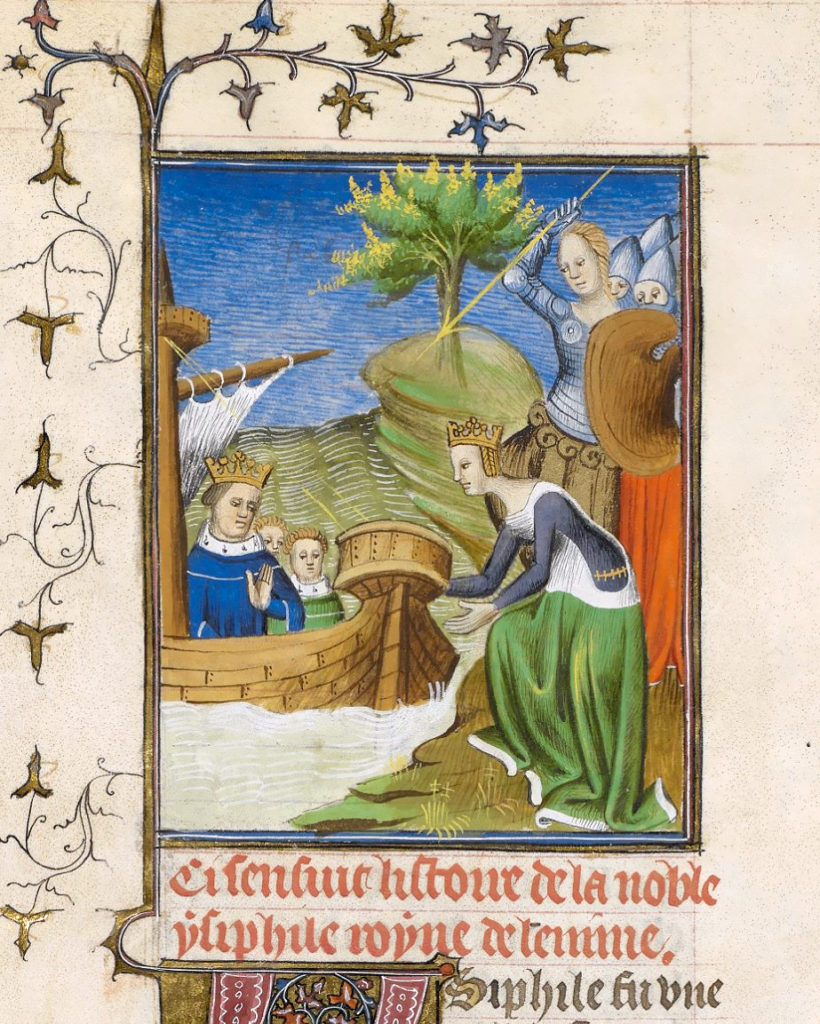 Ci sensuit listoire de la noble
ÿsiphile roÿne de
Siphile fu vne